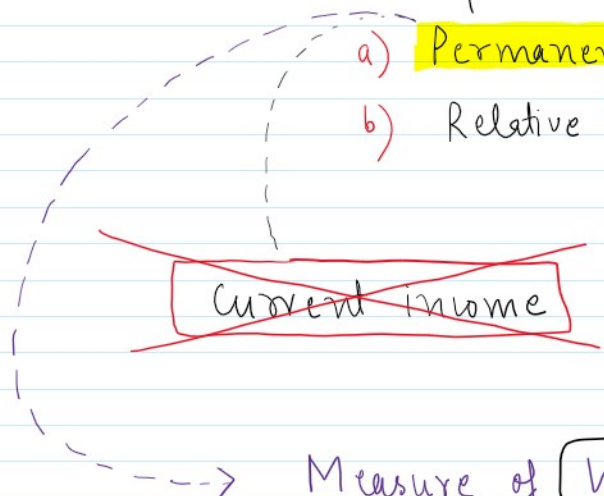 a) Permanen
b) Relative
Current income
Measure of